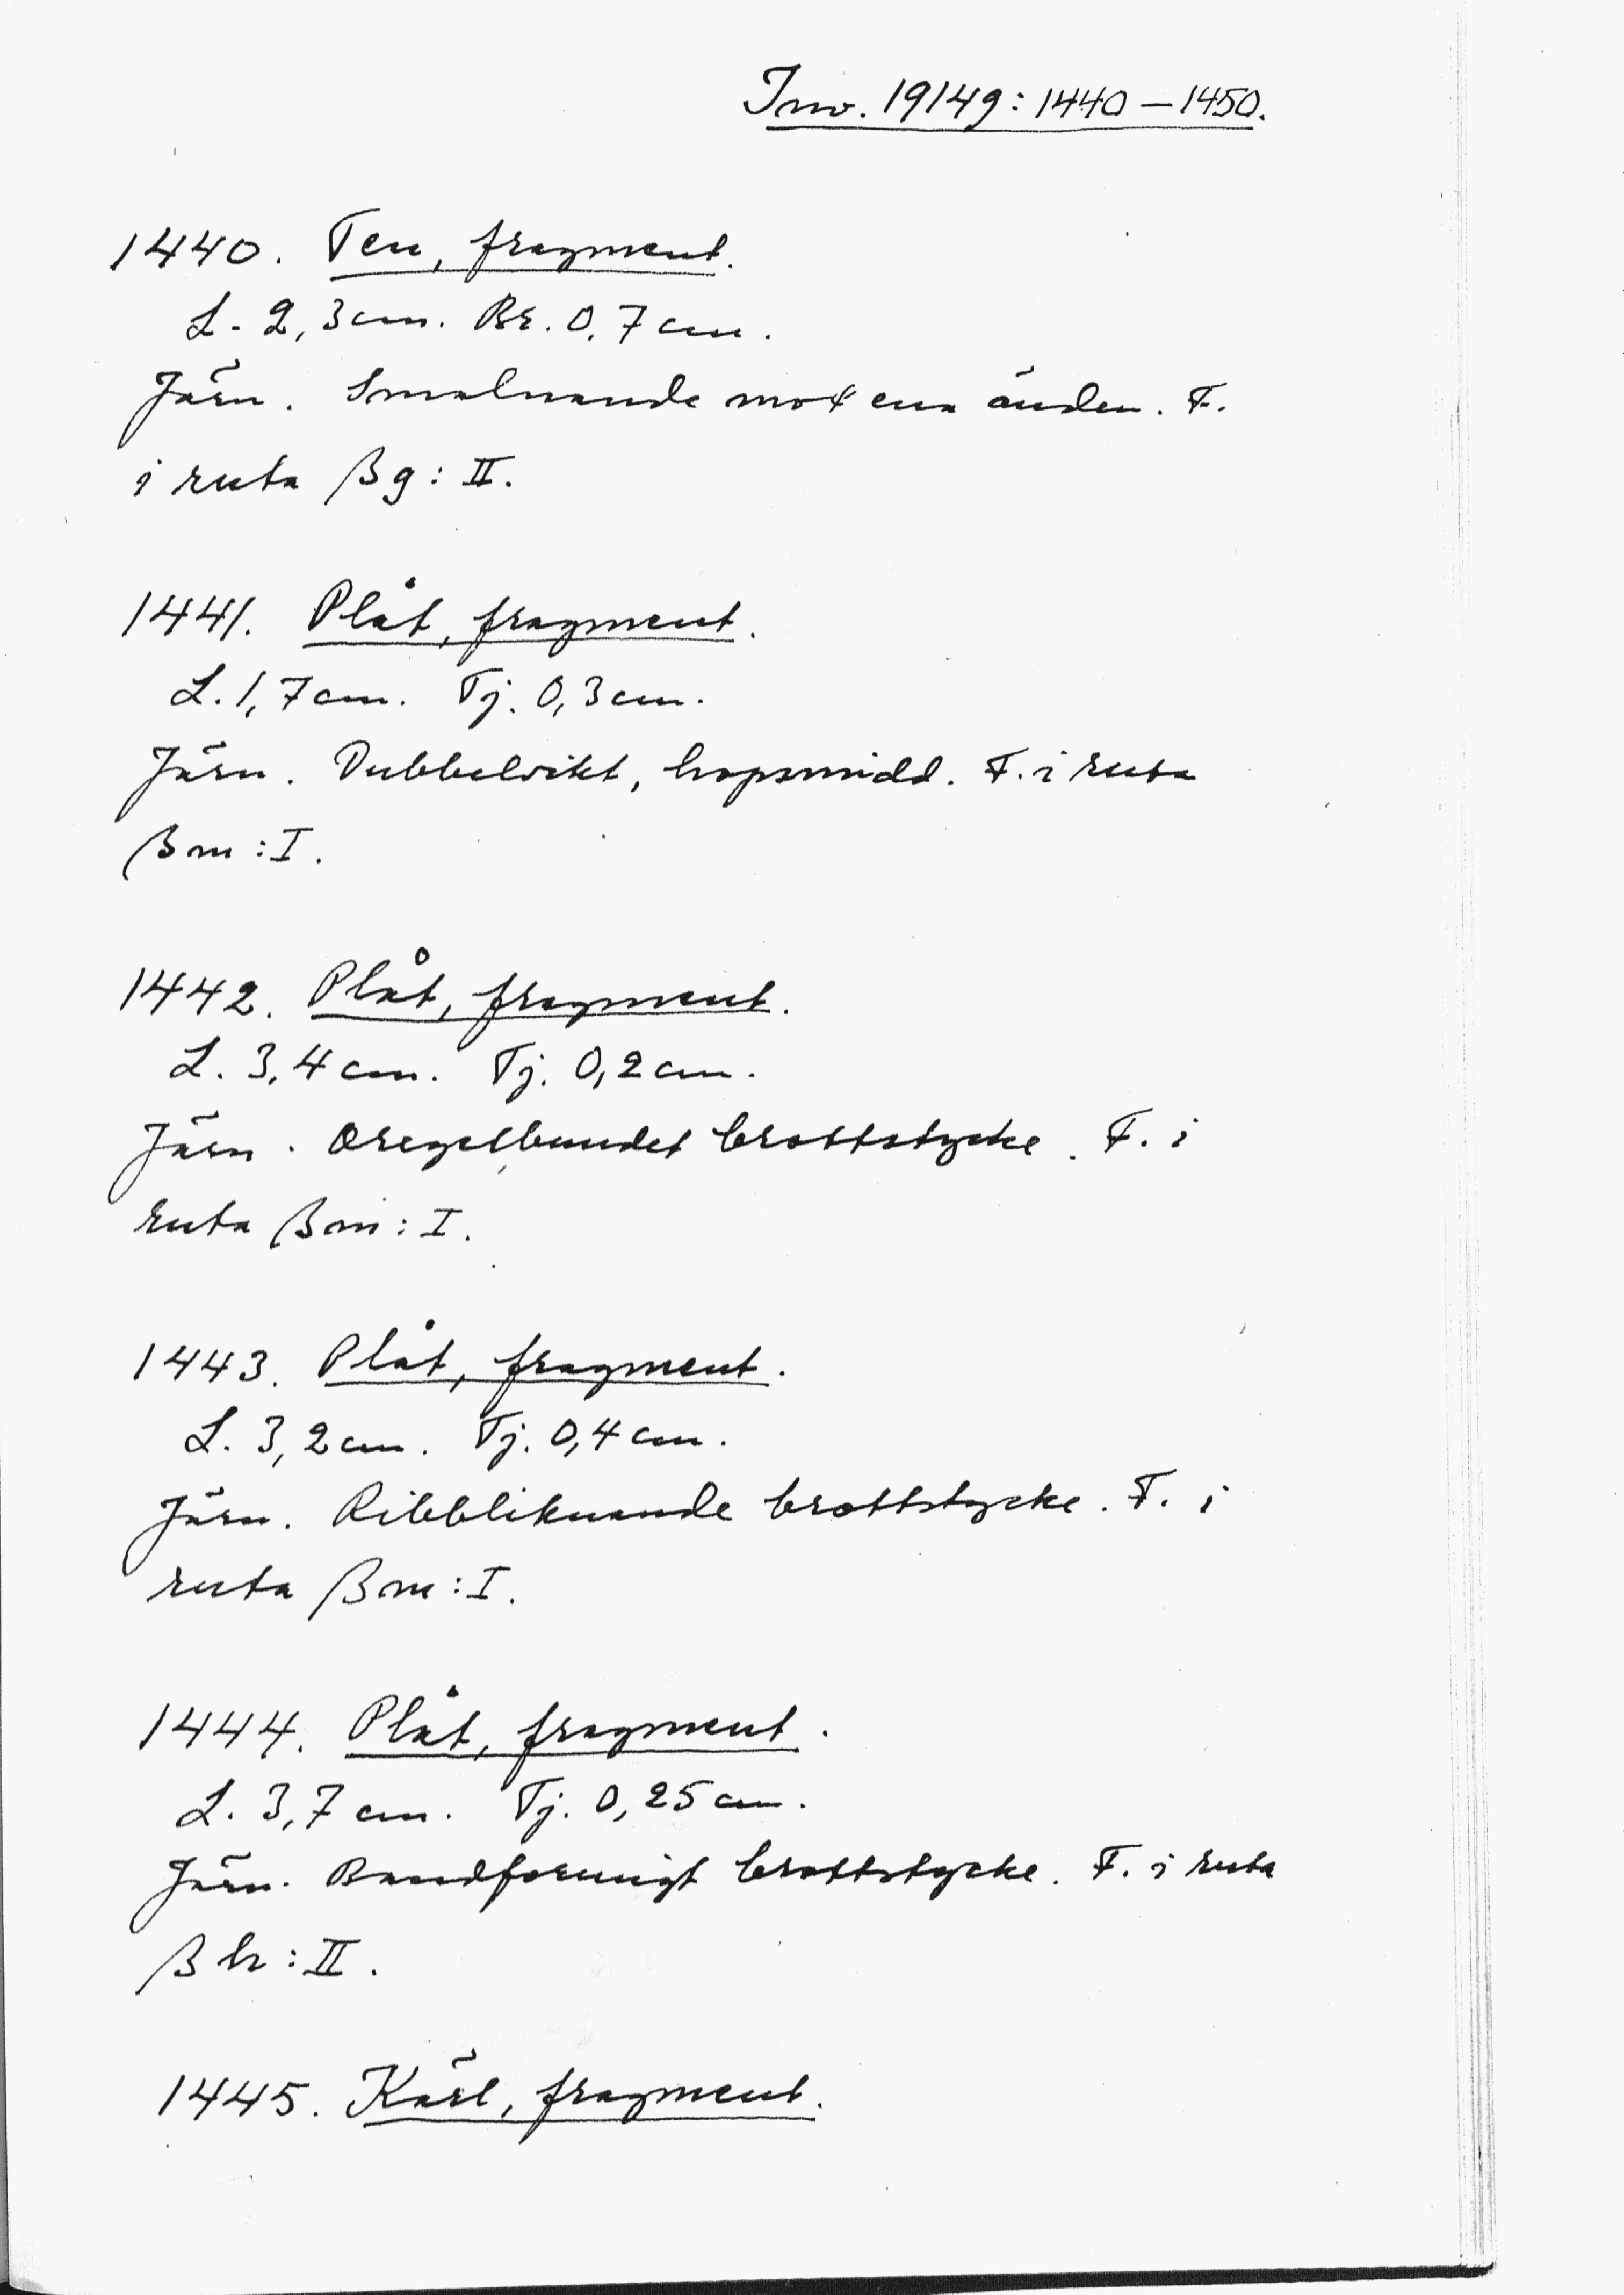 Inv. 19149: 1440 – 1450.
1440. Ten, fragment.
L. 2,3 cm. Br. 0,7 cm.
Järn. Smalnande mot ena änden. F.
i ruta Bg: II.
1441. Plåt, fragment.
L. 1,7 cm. Tj. 0,3 cm.
Järn. Dubbelvikt, hopsmidd. F. i ruta
Bm: I.
1442. Plåt, fragment.
L. 3,4 cm. Tj. 0,2 cm.
Järn. Oregelbundet brottstycke. F. i
ruta Bm: I.
1443. Plåt, fragment.
L. 3,2 cm. Tj. 0,4 cm.
Järn. Ribbliknande brottstycke. F. i
ruta Bm: I.
1444. Plåt, fragment.
L. 3,7 cm. Tj. 0,25 cm.
Järn. Bandformigt brottstycke. F. i ruta
Bh: II.
1445. Kärl, fragment.